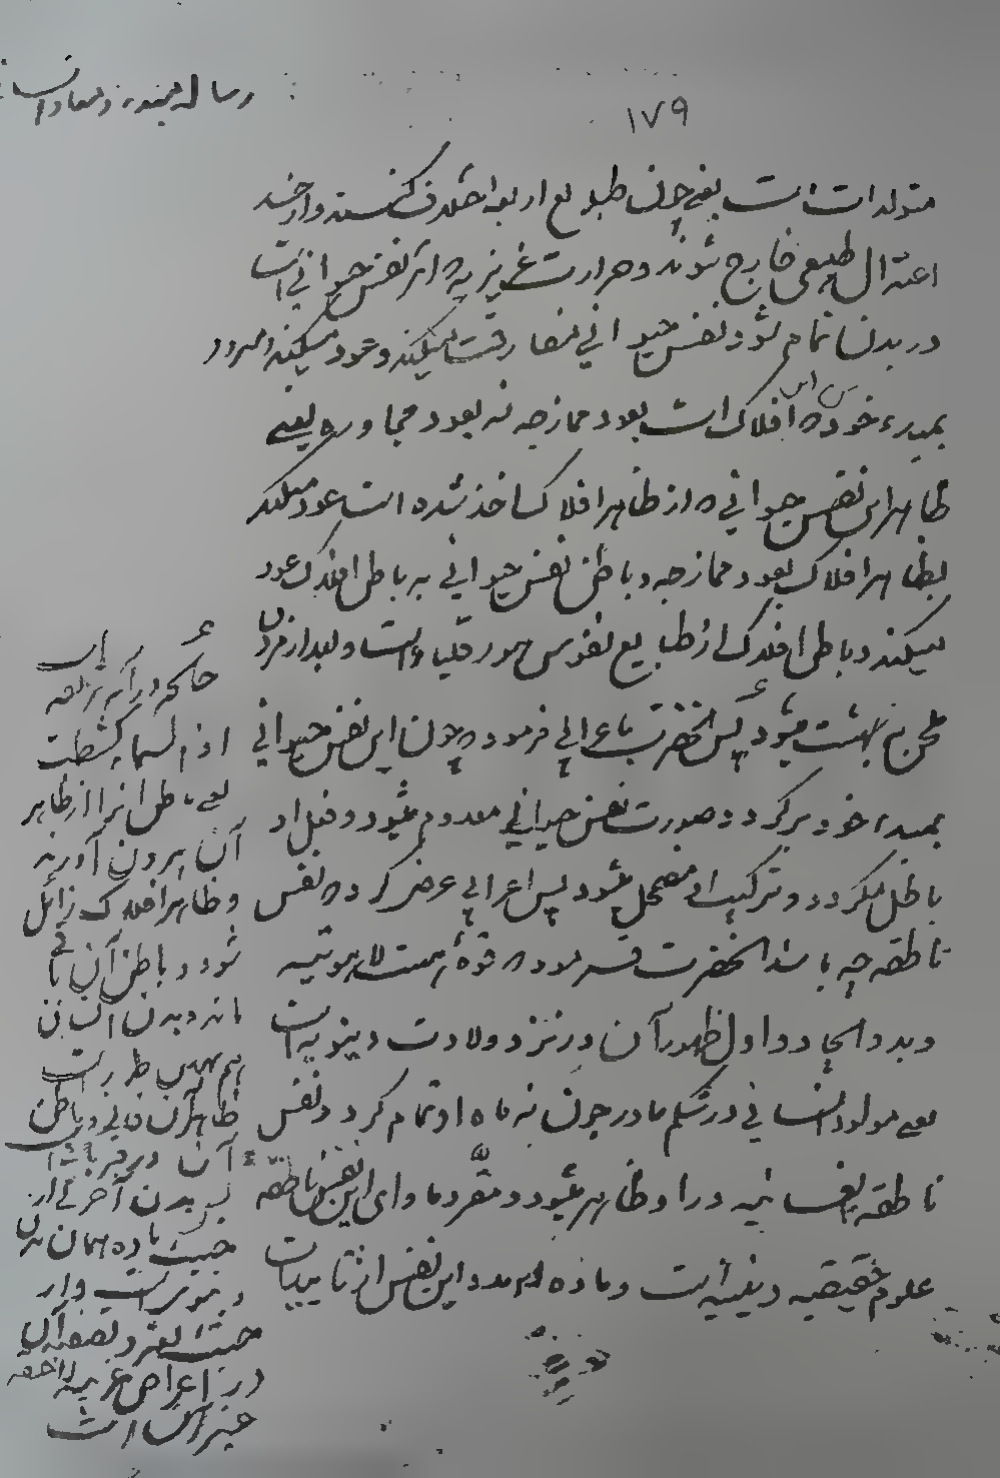 رساله مبدء و معاد
١٧٩
متولدات است یعنی چون طبایع اربعه اختلاف کنند و از حد
اعتدال طبیعی خارج شوند و حرارت غریزیه که اثر نفس حیوانی است
در بدن تمام شود نفس حیوانی مفارقت میکند و عود میکند و میرود
بمبدء خود که افلاک است بعود ممازجه نه بعود مجاوره یعنی
ظاهر این نفس حیوانی که از ظاهر افلاک اخذ شده است عود میکند
بظاهر افلاک بعود ممازجه و باطن نفس حیوانی به باطن افلاک عود
میکند و باطن افلاک از طبایع نفوس هورقلیاوی است و بعد از مردن
بهشت میشود پس آنحضرت باعرابی فرمود که چون این نفس حیوانی
بمبدء خود برگردد صورت نفس حیوانی معدوم میشود و فعل او
باطل میگردد و ترکیب او مضمحل میشود پس اعرابی عرض کرد که نفس
ناطقه چه باشد آنحضرت فرمود که قوه ایست لاهوتیه
و بدو ایجاد و اول ظهور آن در نزد ولادت دنیویه است
یعنی مولود انسانی در شکم مادر چون نه ماه او تمام گردد نفس
ناطقه انسانیه در او ظاهر میشود و مقر و ماوای این نفس ناطقه
علوم حقیقیه دینیه است و ماده و مدد این نفس از تاییدات
چنانکه در آیه شریفه
اذا السماء کشطت
یعنی باطن آنرا از ظاهر
آن بیرون آورند
و ظاهر افلاک زائل
شود و باطن آن باقی
ماند و بدن انسان
هم بهمین طور است
ظاهر آن فانی و باطن
آن در قبر باقی است
پس بدن آخرتی از
حیث ماده همان بدن
دنیوی است و از
حیث تغیر و تصفیه آن
در اعراض غریبه لاحقه
غیر آن است